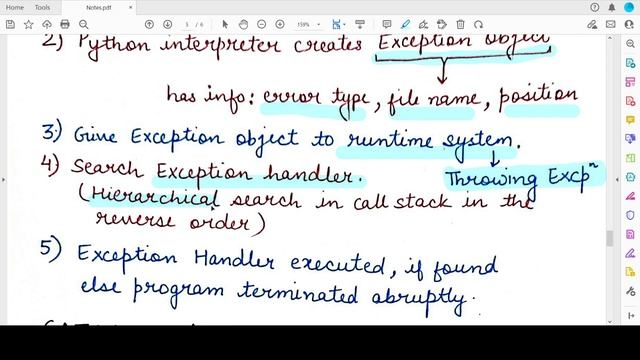 Home Tools Notes.pdf ×
5 / 6 159%
2) Python interpreter creates Exception object
has info: error type, file name, position
3) Give Exception object to runtime system.
4) Search Exception handler. Throwing Excpⁿ
(Hierarchical search in call stack in the
reverse order)
5) Exception Handler executed, if found
else program terminated abruptly.